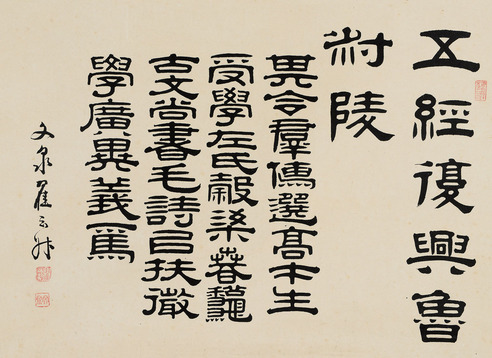 五經復興魯
陵
其令羣儒選高才生
受學左氏穀梁春秋
古文尚書毛詩以扶微
學廣異義焉
文泉翟云升